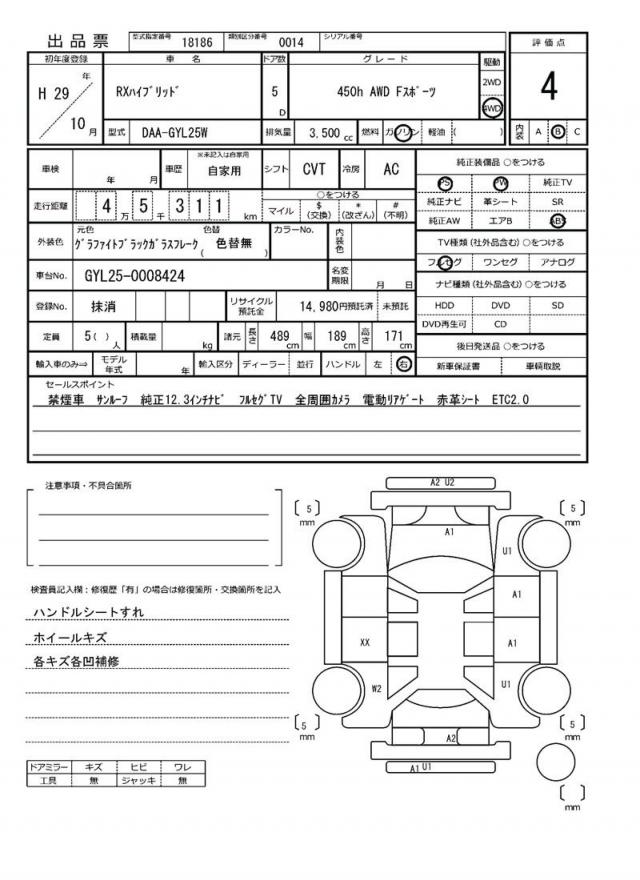 出品票 型式指定番号 18186 類別区分番号 0014 シリアル番号
評価点
4
初年度登録 車名 ドア数 グレード 駆動
H 29 年 10 月
RXﾊｲﾌﾞﾘｯﾄﾞ 5 D 450h AWD Fｽﾎﾟｰﾂ 2WD 4WD
型式 DAA-GYL25W 排気量 3,500 cc 燃料 ガソリン 軽油 ( )
内装 A B C
車検 年 月 車歴 ※未記入は自家用 自家用 シフト CVT 冷房 AC
走行距離 4 万 5 千 3 1 1 km
○をつける
マイル $(交換) *(改ざん) #(不明)
外装色 元色 ｸﾞﾗﾌｧｲﾄﾌﾞﾗｯｸｶﾞﾗｽﾌﾚｰｸ 色替 ( 色替無 ) カラーNo. 内装色
車台No. GYL25-0008424 名変期限 月 日
登録No. 抹消 リサイクル預託金 14,980円預託済 未預託
定員 5( ) 人 積載量 kg 諸元 長さ 489 cm 幅 189 cm 高さ 171 cm
輸入車のみ⇒ モデル年式 年 輸入区分 ディーラー 並行 ハンドル 左 右
純正装備品 ○をつける
PS PW 純正TV
純正ナビ 革シート SR
純正AW エアB ABS
TV種類(社外品含む) ○をつける
フルセグ ワンセグ アナログ
ナビ種類(社外品含む) ○をつける
HDD DVD SD
DVD再生可 CD
後日発送品 ○をつける
新車保証書 車輌取説
セールスポイント
禁煙車 ｻﾝﾙｰﾌ 純正12.3ｲﾝﾁﾅﾋﾞ ﾌﾙｾｸﾞTV 全周囲ｶﾒﾗ 電動ﾘｱｹﾞｰﾄ 赤革ｼｰﾄ ETC2.0
注意事項・不具合箇所
検査員記入欄：修復歴「有」の場合は修復箇所・交換箇所を記入
ハンドルシートすれ
ホイールキズ
各キズ各凹補修
ドアミラー キズ ヒビ ワレ
工具 無 ジャッキ 無
A2 U2
[ 5 ] mm
[ 5 ] mm
A1
U1
A1
XX
A1
W2
U1
[ 5 ] mm
[ 5 ] mm
A2
A1 U1
[ ] mm